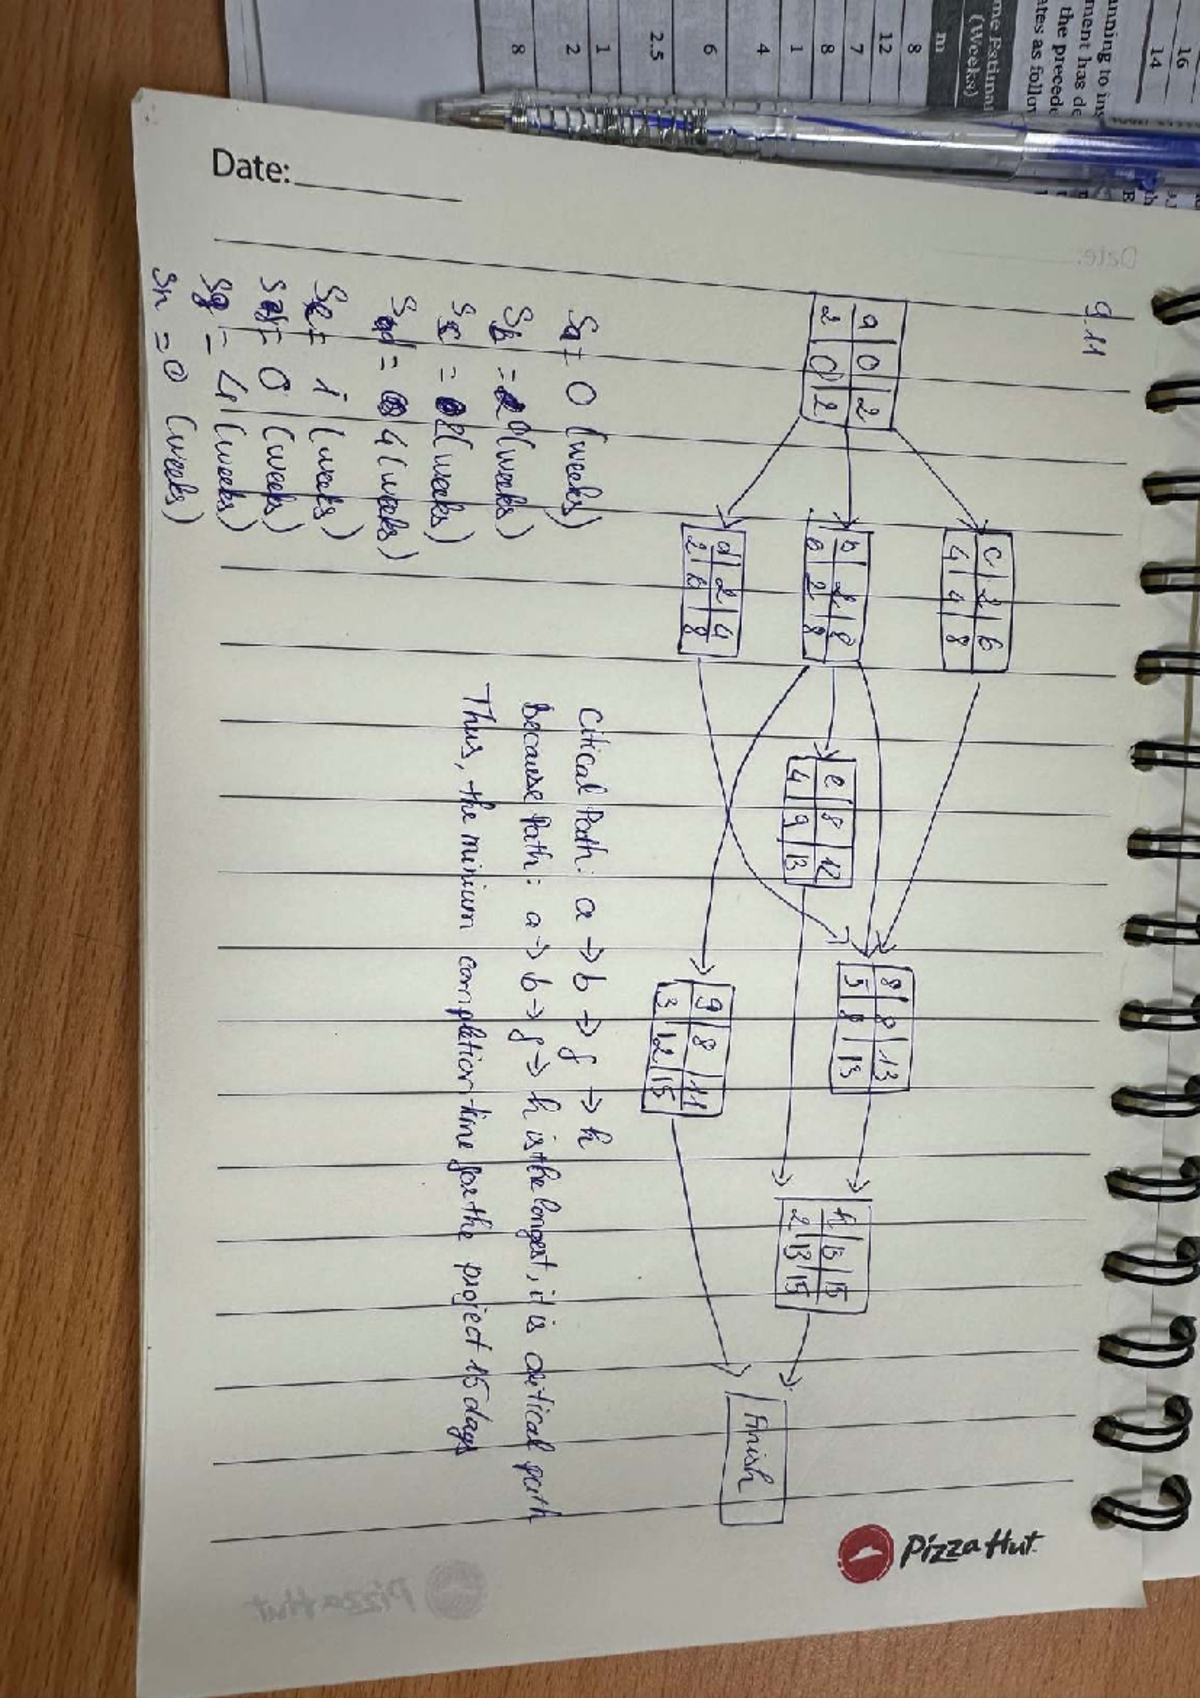 9.11
a 0 2
2 0 2
c 2 6
4 4 8
b 2 8
6 2 8
d 2 4
2 6 8
e 8 12
4 9 13
8 8 13
5 8 13
9 8 11
3 12 15
h 13 15
2 13 15
Finish
Sa = 0 (weeks)
Sb = 0 (weeks)
Sc = 2 (weeks)
Sd = 4 (weeks)
Se = 1 (weeks)
Sf = 0 (weeks)
Sg = 4 (weeks)
Sh = 0 (weeks)
Citical Path: a → b → f → h
because Path: a → b → f → h is the longest, it is critical path
Thus, the minium completion time for the project 15 days
Date:
Date:
Pizza Hut
Pizza Hut
16
14
nning to ins
ment has de
the precede
ates as follow
me Estimat
(Weeks)
m
8
12
7
8
1
4
6
2.5
1
2
8